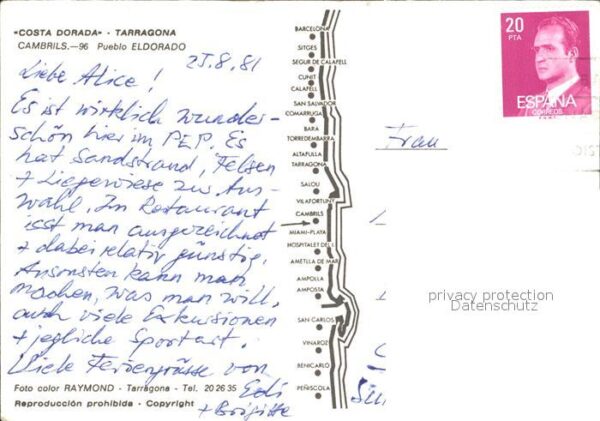 «COSTA DORADA» - TARRAGONA
CAMBRILS.—96 Pueblo ELDORADO
25.8.81
Liebe Alice!
Es ist wirklich wunder-
schön hier im P.E.P. Es
hat Sandstrand, Felsen
+ Liegewiese zur Aus-
wahl. Im Restaurant
isst man ausgezeichnet
+ dabei relativ günstig.
Ansonsten kann man
machen, was man will,
auch viele Exkursionen
+ jegliche Sportart.
Viele Feriengrüsse von
Edi
+ Brigitte
Foto color RAYMOND - Tarragona - Tel. 20 26 35
Reproducción prohibida - Copyright
BARCELONA
SITGES
SEGUR DE CALAFELL
CUNIT
CALAFELL
SAN SALVADOR
COMARRUGA
BARA
TORREDEMBARRA
ALTAFULLA
TARRAGONA
SALOU
VILAFORTUNY
CAMBRILS
MIAMI-PLAYA
HOSPITALET DEL I.
AMETLLA DE MAR
AMPOLLA
AMPOSTA
SAN CARLOS
VINAROZ
BENICARLO
PEÑISCOLA
20
PTA
ESPAÑA
CORREOS
Frau
privacy protection
Datenschutz